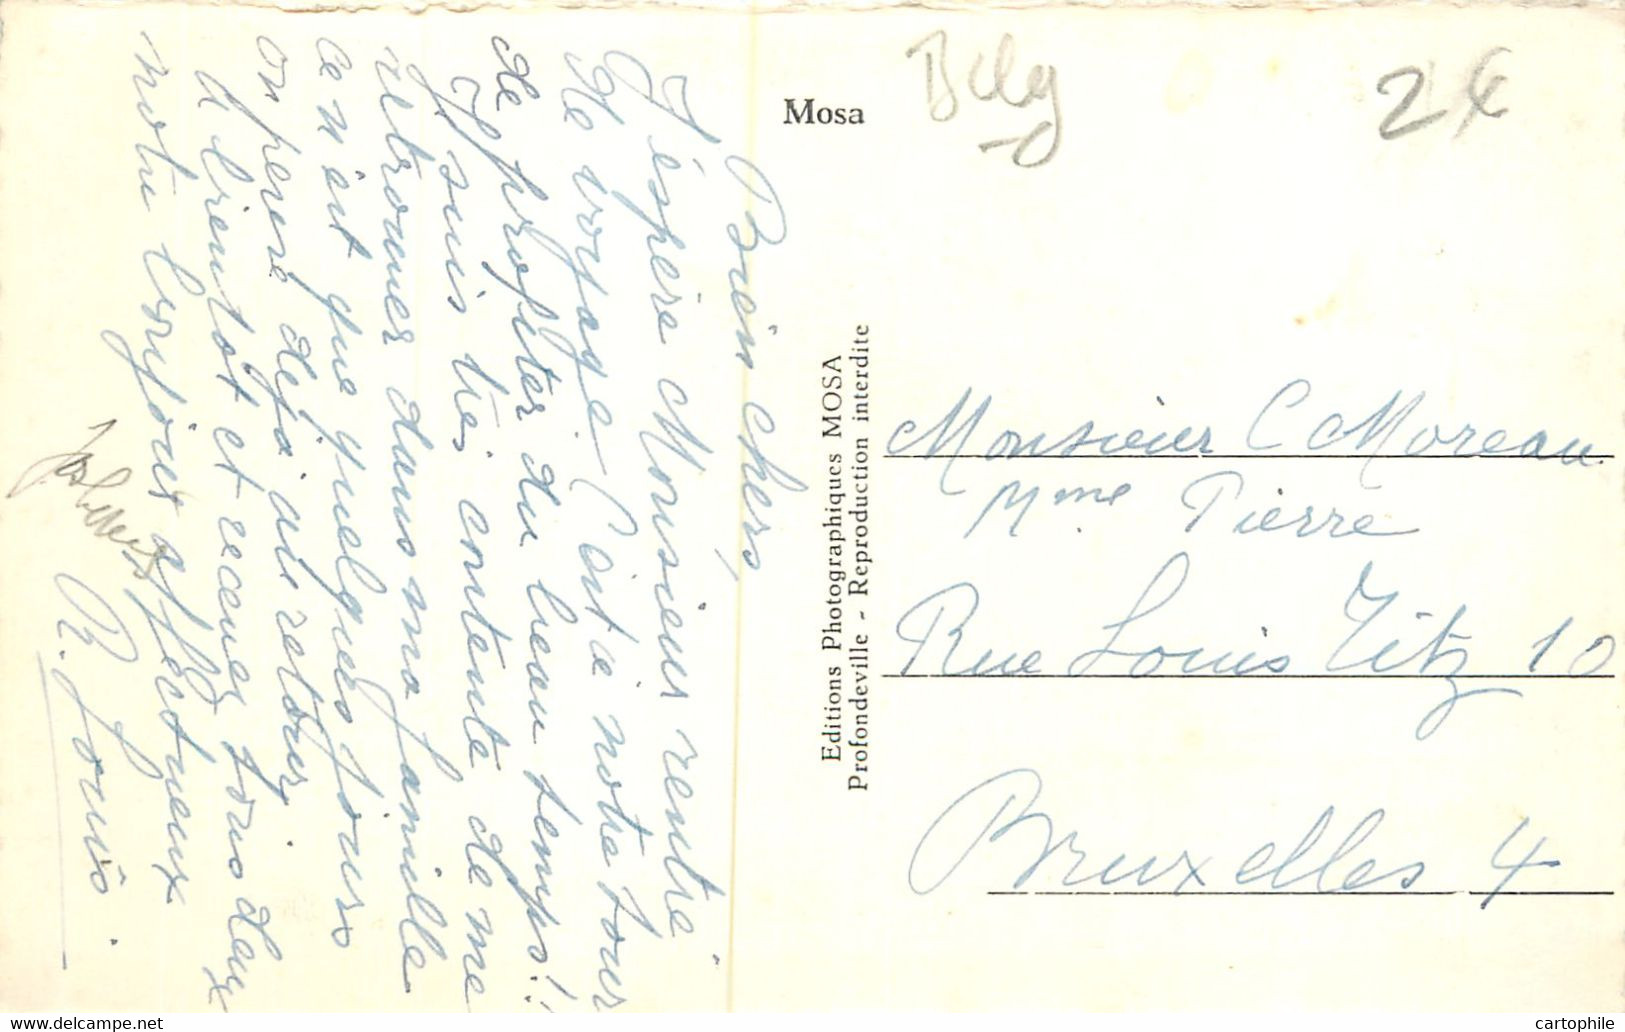 Mosa
Belg
2€
Bien chers,
J'éspère Monsieur rentré
de voyage C'est a notre tour
de profiter du beau temps!!
J suis très contente de me
retrouver dans ma famille
ce n'est que quelques jours
on pense déja au retour,
A bientôt et recevez tous deux
notre bonjour affectueux
R. Louis.
Editions Photographiques MOSA
Profondeville - Reproduction interdite
Monsieur C Moreau
Mme Pierre
Rue Louis Titz 10
Bruxelles 4
www.delcampe.net
cartophile